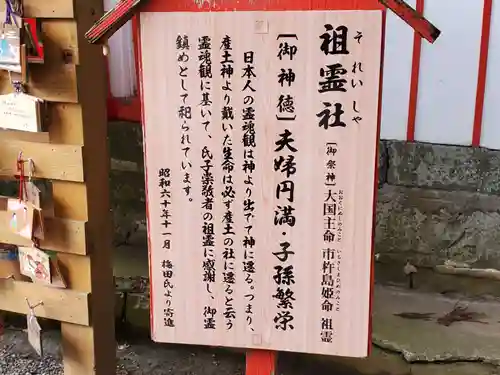 祖霊社
それいしゃ
[御祭神] 大国主命 市杵島姫命 祖霊
おおくにぬしのみこと いちきしまひめのみこと
[御神徳] 夫婦円満・子孫繁栄
日本人の霊魂観は神より出でて神に還る。つまり、
産土神より戴いた生命は必ず産土の社に還ると云う
霊魂観に基いて、氏子崇敬者の祖霊に感謝し、御霊
鎮めとして祀られています。
昭和六十年十一月 梅田氏より寄進